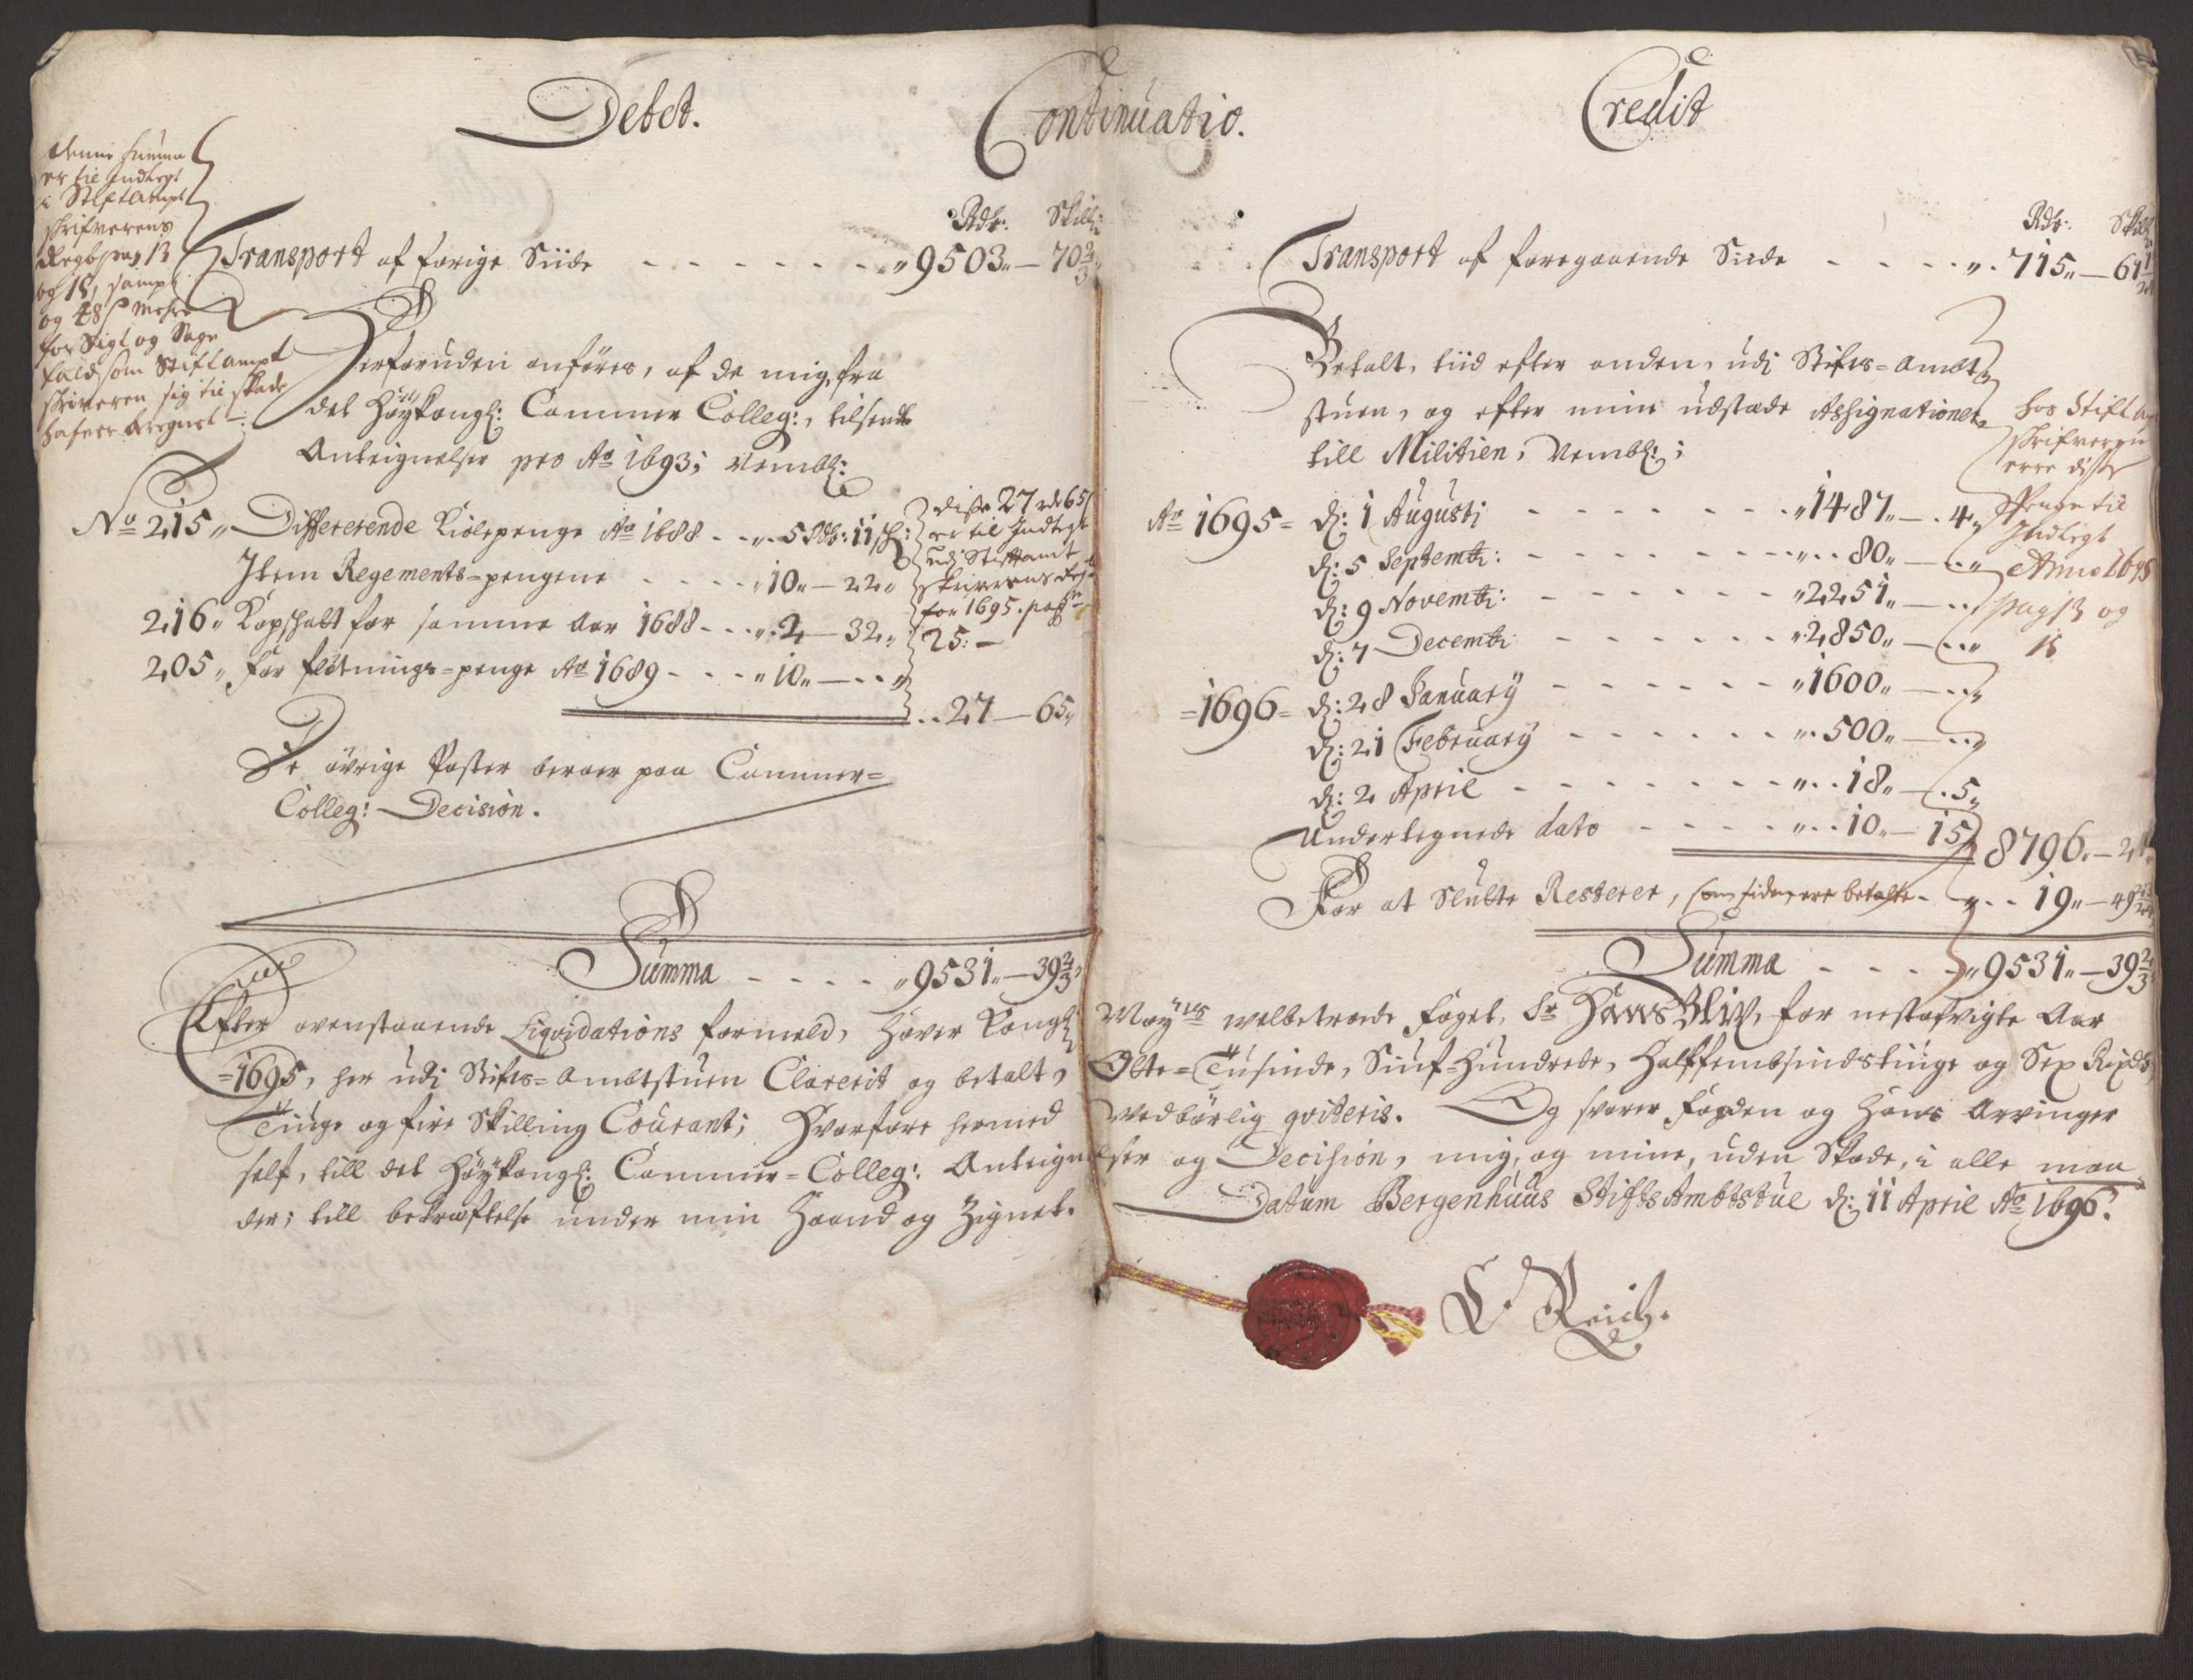 Debet. Continuatio. Credit
denne summa
er til Indtegt
i Stiftampt
skrifverens
Regbs pag 13
og 15, sampt
og 48 s mehre
for Sigt og Sage
fald som Stiftampt
skriveren sig til skade
hafver beregnet
Rdr: Skill:
Transport af forige Siide - - - - - - - 9503 — 70 2/3
Herforuden anföres, af de mig, fra
det Höykongl: Cammer Colleg:, tilsendte
Anteignelser pro Ao 1693; Nembl:
No 215 Differerende Kiölepenge Ao 1688 - - 5 Rdr: 11 sh:
Item Regements-pengene - - - - 10 — 22
216 Kopskatt for samme Aar 1688 - - - 2 — 32
205 for flötnings-penge Ao 1689 - - - - 10 — - -
disse 27 rd 65
er til Indtegt
udj Stiftamt
skriverens Regb
for 1695. pag
25: —
- - 27 — 65
De övrige Poster beroer paa Cammer-
Colleg: Decision.
Summa - - - - 9531 — 39 2/3
Rdr: Skill
Transport af foregaaende Siide - - - - 715 — 61
Betalt, tiid efter anden, udi Stifts-Ambt
stuen, og efter mine udstæde Assignationer
till Militien, Nembl:;
hos Stiftam
skrifveren
erre disse
Penge til
Indtegt
Anno 1695
pag 13 og
15
Ao 1695 d: 1 Augusti - - - - - - - 1487 — 4
d: 5 Septembr: - - - - - - - 80 — - -
d: 9 Novembr: - - - - - - 2251 — - -
d: 7 Decembr: - - - - - - 2850 — - -
1696 d: 28 January - - - - - - 1600 — - -
d: 21 February - - - - - - 500 — - -
d: 2 April - - - - - - - 18 — 5
Undertegnede dato - - - - - 10 — 15
8796 — 24
For at Slutte Resterer, som siden ere betalte - - - 19 — 49
Summa - - - - 9531 — 39 2/3
Efter ovenstaaende Liqvidations formeld, Haver Kongl: Mayts welbetroede foget, Sr Hans Blix, for nestafvigte Aar
1695, her udi Stifts-Ambtstuen Clarerit og betalt, Otte-Tusinde, Siuf-Hundrede, Halffembsindstiuge og Sex Rixdlr
Tiuge og fire Skilling Courant; Hvorfore hermed vedbörlig qviteris. Og svarer fogden og hans Arvinger
self, till det Höykongl: Cammer-Colleg: Anteignelser og Decision, mig, og mine, uden Skade, i alle maa
der; till bekræftelse under min Haand og Zignet. Datum Bergenhuus StiftsAmbtstue d: 11 April Ao 1696.
Reich.